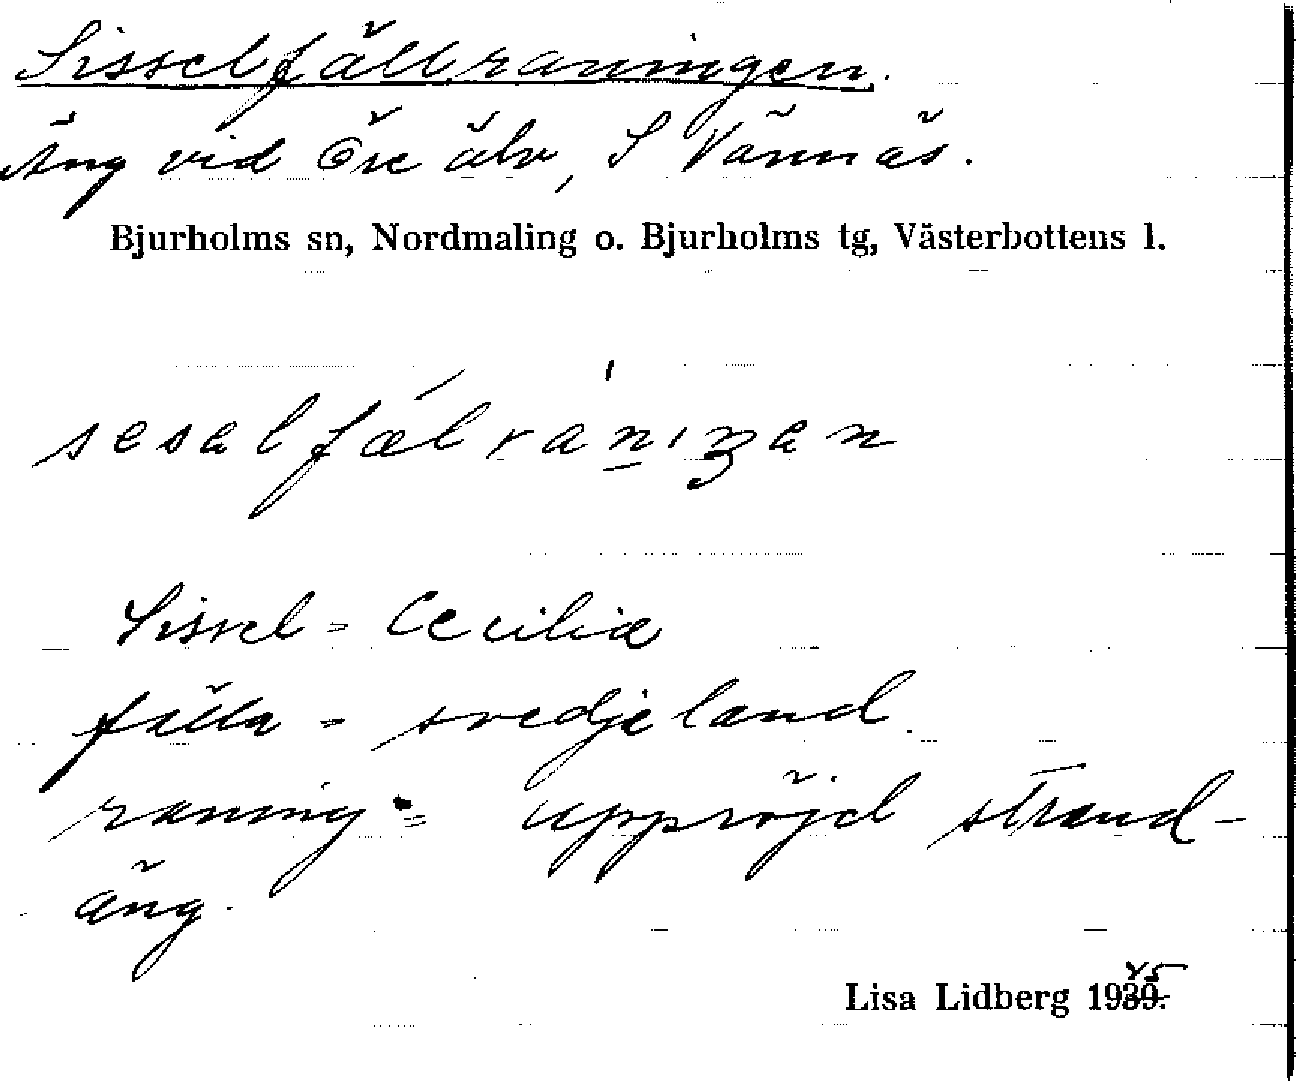 Sisselfällraningen.
Äng vid Öre älv, S Vännäs.
Bjurholms sn, Nordmaling o. Bjurholms tg, Västerbottens l.
Sissel = Cecilia
fälla = svedjeland.
raning = uppröjd strand-
äng.
Lisa Lidberg 1945